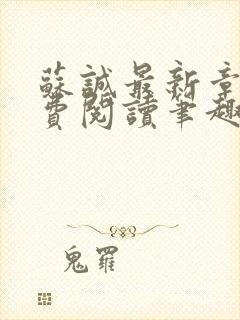 蘇誠最新章
費閱讀筆趣
鬼羅